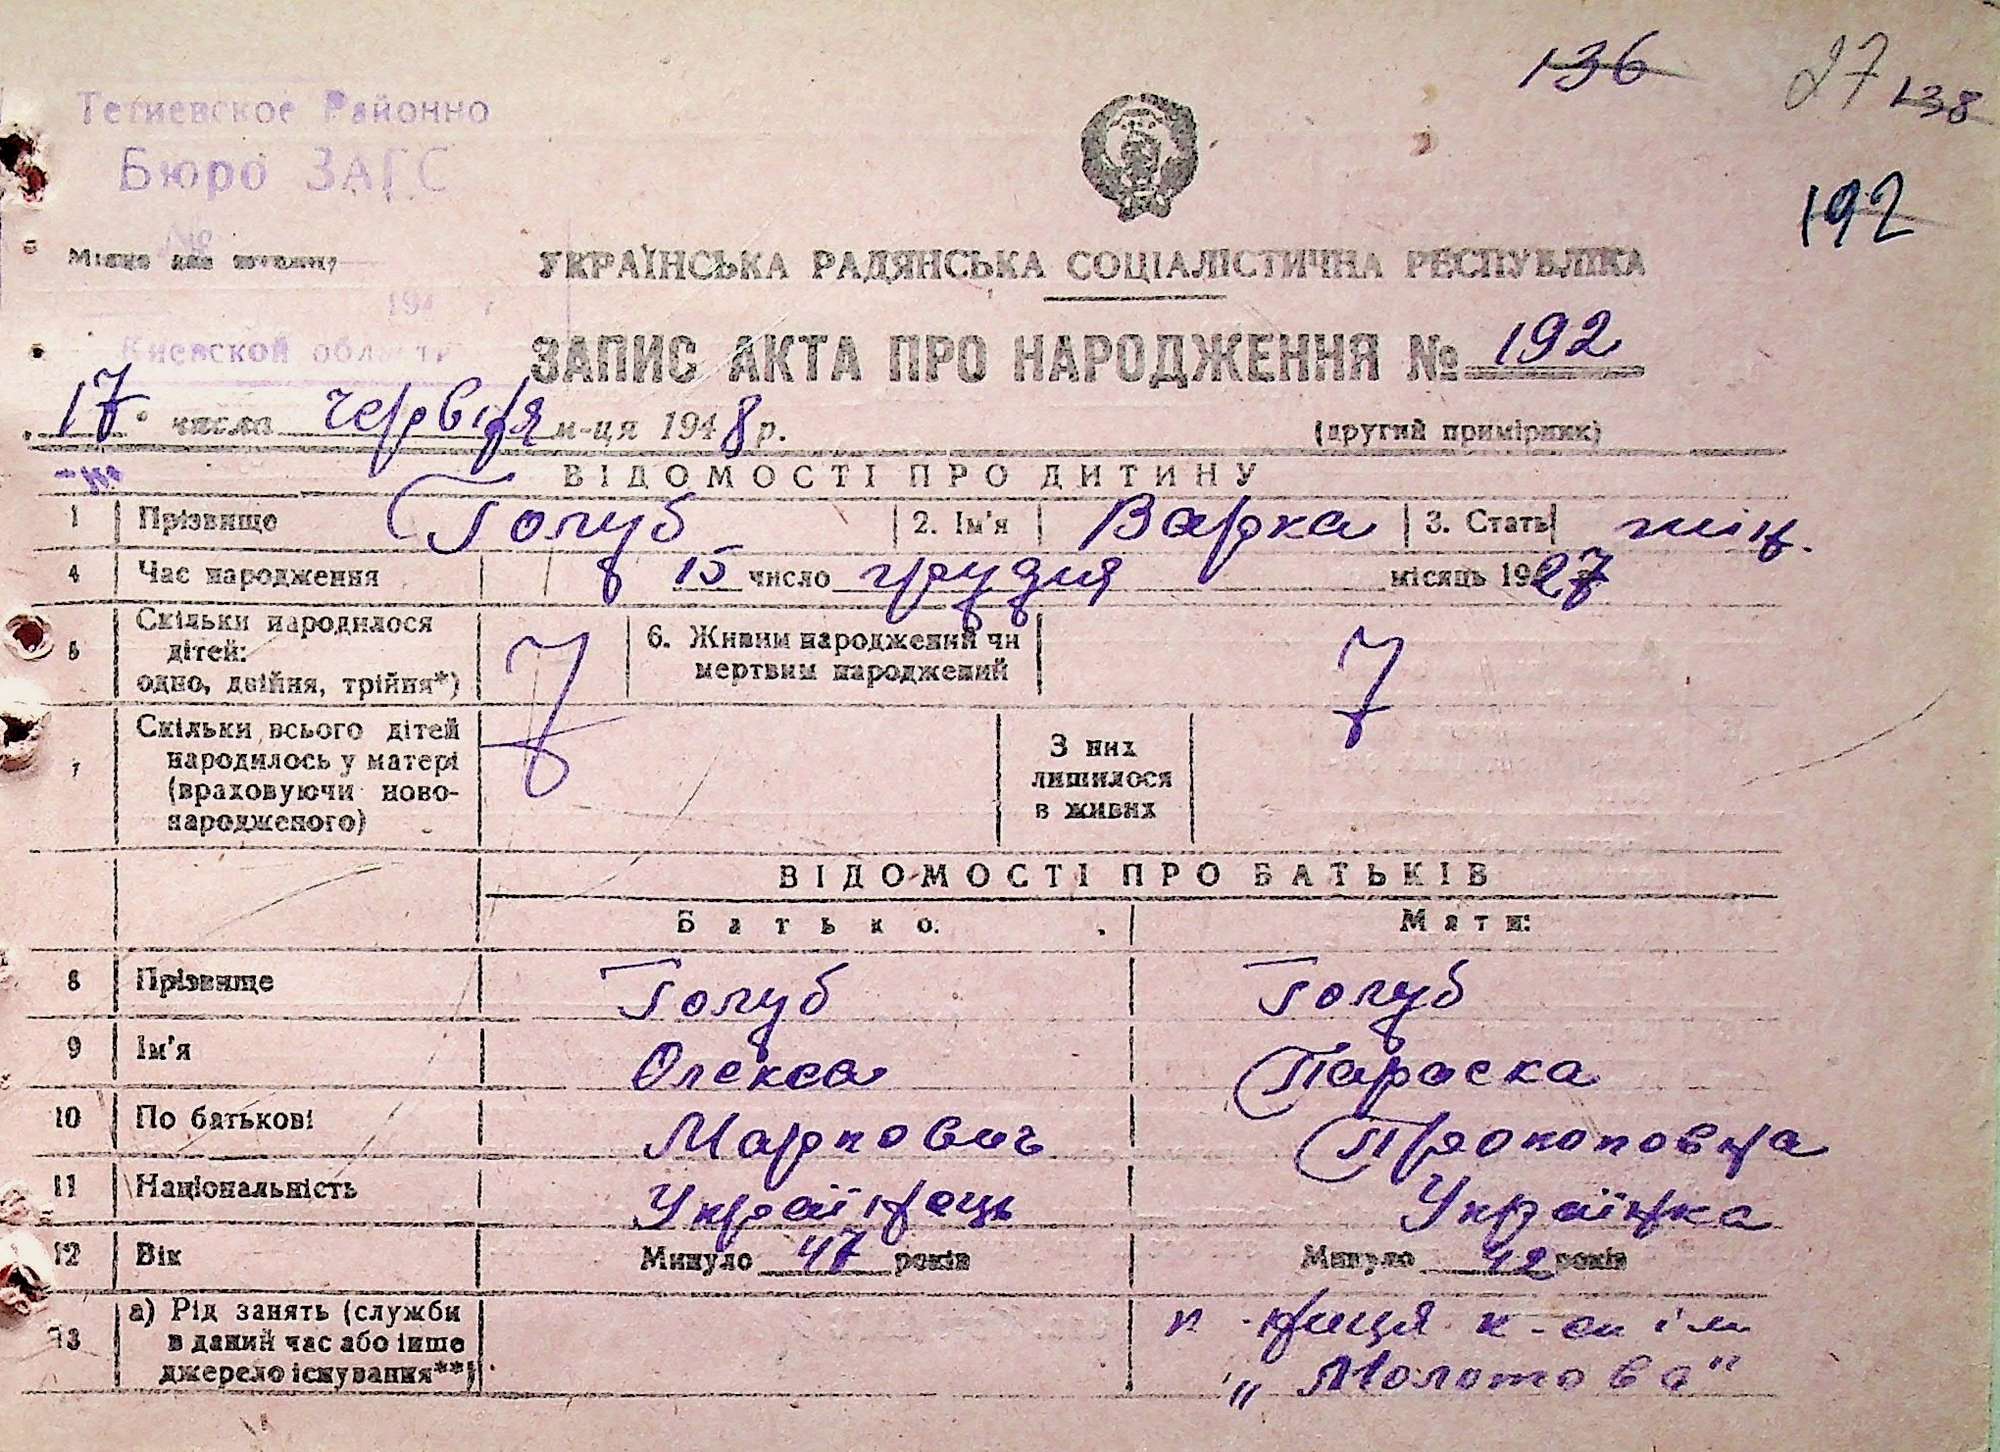 136 27 138
Тетиевское Районно
Бюро ЗАГС
192
№
Місце для штампу
УКРАЇНСЬКА РАДЯНСЬКА СОЦІАЛІСТИЧНА РЕСПУБЛІКА
194 г
Киевской области
ЗАПИС АКТА ПРО НАРОДЖЕННЯ № 192
17 числа червня м-ця 1948 р. (другий примірник)
ВІДОМОСТІ ПРО ДИТИНУ
1 Прізвище Голуб 2. Ім'я Варка 3. Стать жін.
4 Час народження 15 число грудня місяць 1927
5 Скільки народилося дітей: одно, двійня, трійня*) 6. Живим народжений чи мертвим народжений
7 Скільки всього дітей народилось у матері (враховуючи новонародженого) 7 З них лишилося в живих 7
ВІДОМОСТІ ПРО БАТЬКІВ
Батько: Мати:
8 Прізвище Голуб Голуб
9 Ім'я Олекса Параска
10 По батькові Маркович Прокоповна
11 Національність Українець Українка
12 Вік Минуло 47 років Минуло 42 років
13 а) Рід занять (служби в даний час або інше джерело існування**)
к-ниця к-сп ім
"Молотова"